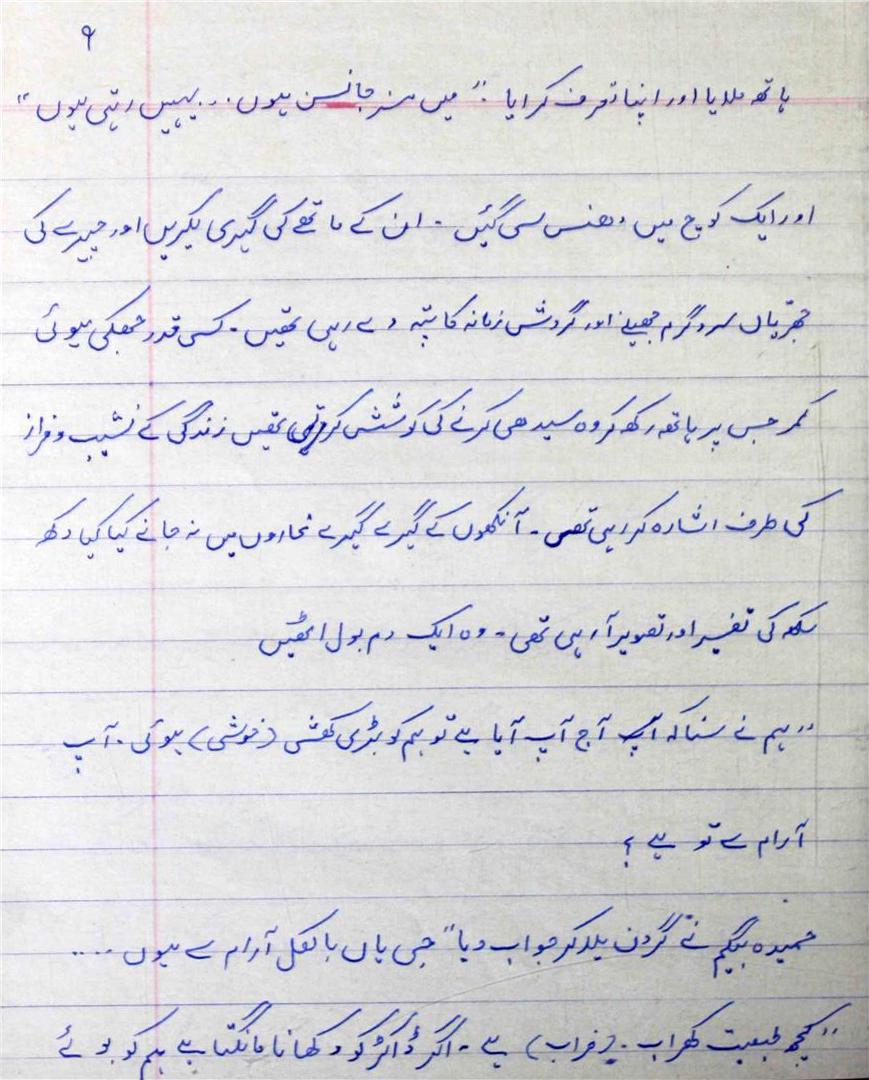 ۹
ہاتھ ملایا اور اپنا تعرف کرایا ۔" میں مسز جانسن ہوں ۔۔ یہیں رہتی ہوں "
اور ایک کوچ میں دھنس سی گئیں ۔ ان کے ماتھے کی گہری لکیریں اور چہرے کی
جھریاں سرد گرم جھیلے اور گردش زمانہ کا پتہ دے رہی تھیں ۔ کسی قدر جھکی ہوئی
کمر جس پر ہاتھ رکھ کر وہ سیدھی کرنے کی کوشش کر رہی تھیں زندگی کے نشیب و فراز
کی طرف اشارہ کر رہی تھی ۔ آنکھوں کے گہرے گہرے غاروں میں نہ جانے کیا کیا دکھ
سکھ کی تفسیر اور تصویر آ رہی تھی ۔ وہ ایک دم بول اٹھیں
" ہم نے سنا کہ آپ آج آپ آیا ہے تو ہم کو بڑی کھشی (خوشی) ہوئی ۔ آپ
آرام سے تو ہے ؟
حمیدہ بیگم نے گردن ہلا کر جواب دیا " جی ہاں بالکل آرام سے ہوں ....
" کچھ طبعیت کھراب ۔ (خراب) ہے ۔ اگر ڈاکٹر کو دکھانا مانگتا ہے ہم کو بولئے